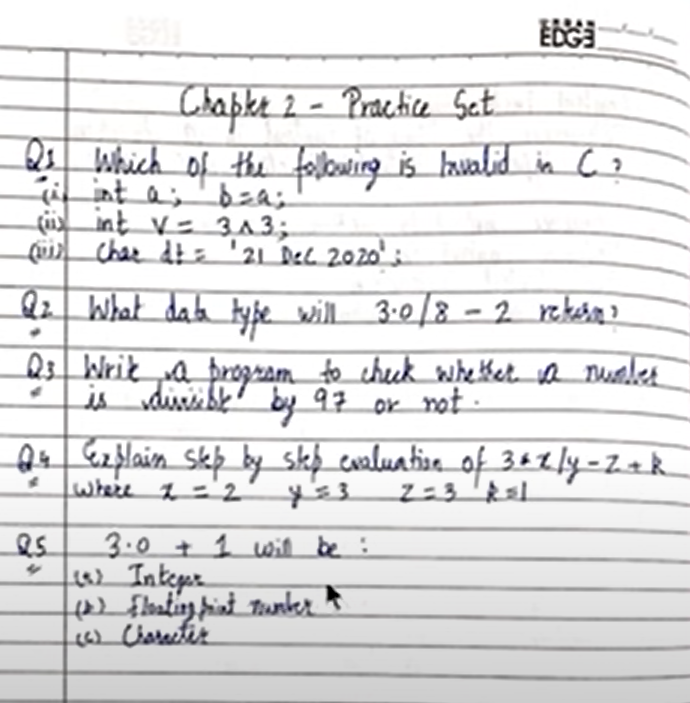 EDGE
Chapter 2 - Practice Set
Q1 Which of the following is Invalid in C?
(i) int a; b=a;
(ii) int v = 3^3;
(iii) char dt = '21 Dec 2020';
Q2 What data type will 3.0/8 - 2 return?
Q3 Write a program to check whether a number
is divisible by 97 or not.
Q4 Explain step by step evaluation of 3*x/y-z+k
where x=2 y=3 z=3 k=1
Q5 3.0 + 1 will be :
(a) Integer
(b) Floating point number
(c) Character